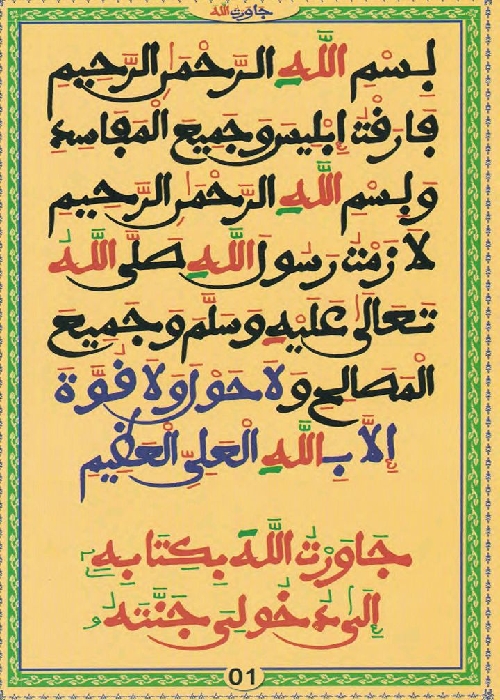 جَاوَرْتُ اللَّهَ
بِسْمِ اللَّهِ الرَّحْمَنِ الرَّحِيمِ
فَارَقْتُ إِبْلِيسَ وَجَمِيعَ الْمَفَاسِدِ
وَبِسْمِ اللَّهِ الرَّحْمَنِ الرَّحِيمِ
لَازَمْتُ رَسُولَ اللَّهِ صَلَّى اللَّهُ
تَعَالَى عَلَيْهِ وَسَلَّمَ وَجَمِيعَ
الْمَصَالِحِ وَلَا حَوْلَ وَلَا قُوَّةَ
إِلَّا بِاللَّهِ الْعَلِيِّ الْعَظِيمِ
جَاوَرْتُ اللَّهَ بِكِتَابِهِ
إِلَى دُخُولِى جَنَّتَهُ
01